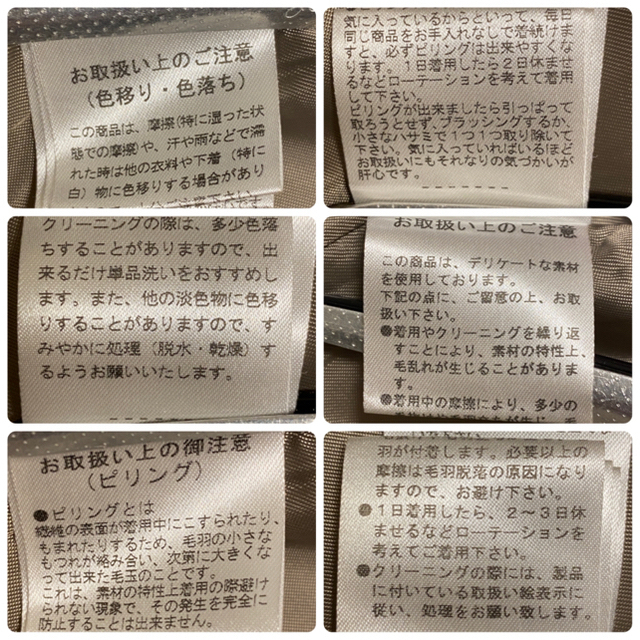 お取扱い上のご注意
(色移り・色落ち)
この商品は、摩擦(特に湿った状
態での摩擦)や、汗や雨などで濡
れた時は他の衣料や下着(特に
白)物に色移りする場合があり
気に入っているからといって、毎日
同じ商品をお手入れなしで着続けま
すと、必ずピリングは出来やすくな
ります。1日着用したら2日休ませ
るなどローテーションを考えて着用
して下さい。
ピリングが出来ましたら引っぱって
取ろうとせず、ブラッシングするか、
小さなハサミで1つ1つ取り除いて
下さい。気に入っていればいるほど
お取扱いにもそれなりの気づかいが
肝心です。
クリーニングの際は、多少色落
ちすることがありますので、出
来るだけ単品洗いをおすすめし
ます。また、他の淡色物に色移
りすることがありますので、す
みやかに処理(脱水・乾燥)す
るようお願いいたします。
お取扱い上のご注意
この商品は、デリケートな素材
を使用しております。
下記の点に、ご留意の上、お取
扱い下さい。
●着用やクリーニングを繰り返
すことにより、素材の特性上、
毛乱れが生じることがありま
す。
●着用中の摩擦により、多少の
お取扱い上の御注意
(ピリング)
●ピリングとは
繊維の表面が着用中にこすられたり、
もまれたりするため、毛羽の小さな
もつれが絡み合い、次第に大きくな
って出来た毛玉のことです。
これは、素材の特性上着用の際避け
られない現象で、その発生を完全に
防止することは出来ません。
羽が付着します。必要以上の
摩擦は毛羽脱落の原因になり
ますので、お避け下さい。
●1日着用したら、2~3日休
ませるなどローテーションを
考えてご着用下さい。
●クリーニングの際には、製品
に付いている取扱い絵表示に
従い、処理をお願い致します。